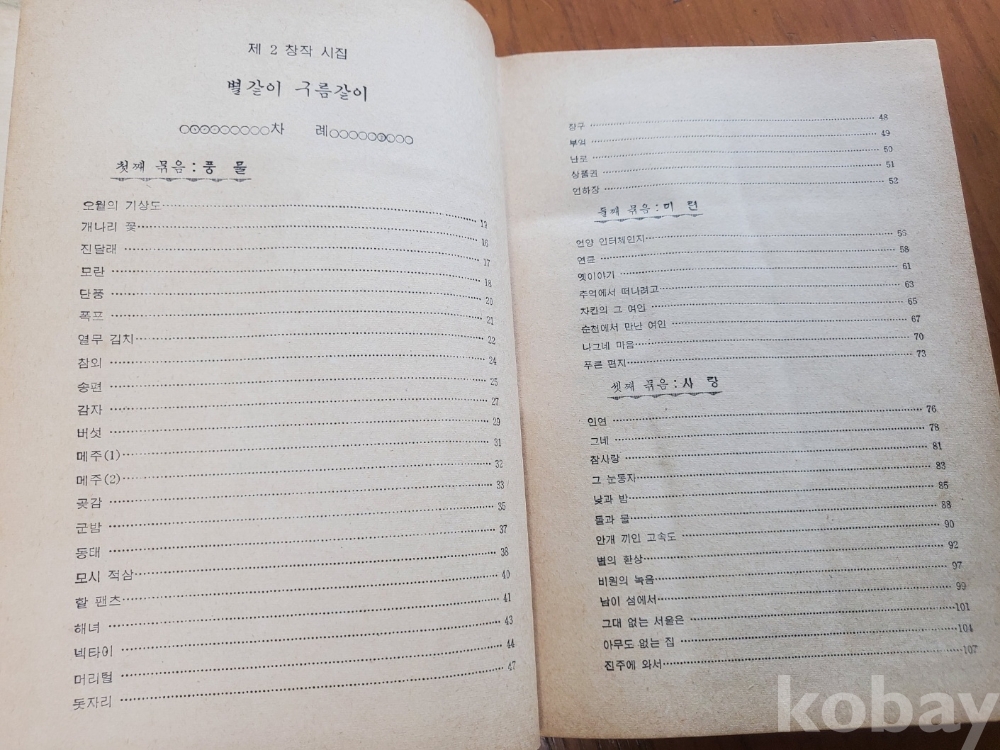 제 2 창작 시집
별같이 구름같이
차 례
첫째 묶음 : 풍 물
오월의 기상도 19
개나리 꽃 16
진달래 17
모란 18
단풍 20
폭포 21
열무 김치 22
참외 24
송편 25
감자 27
버섯 29
메주(1) 31
메주(2) 32
곶감 33
군밤 35
동태 37
모시 적삼 38
할 팬츠 40
해녀 41
넥타이 43
머리털 44
돗자리 47
장구 48
부엌 49
난로 50
상품권 51
연하장 52
둘째 묶음 : 미 련
언양 인터체인지 55
연륜 58
옛이야기 61
추억에서 떠나려고 63
자킨의 그 여인 65
순천에서 만난 여인 67
나그네 마음 70
푸른 편지 73
셋째 묶음 : 사 랑
인연 76
그네 78
참사랑 81
그 눈동자 83
낮과 밤 85
돌과 물 88
안개 끼인 고속도 90
별의 환상 92
비원의 녹음 97
남이 섬에서 99
그대 없는 서울은 101
아무도 없는 집 104
진주에 와서 107
kobay